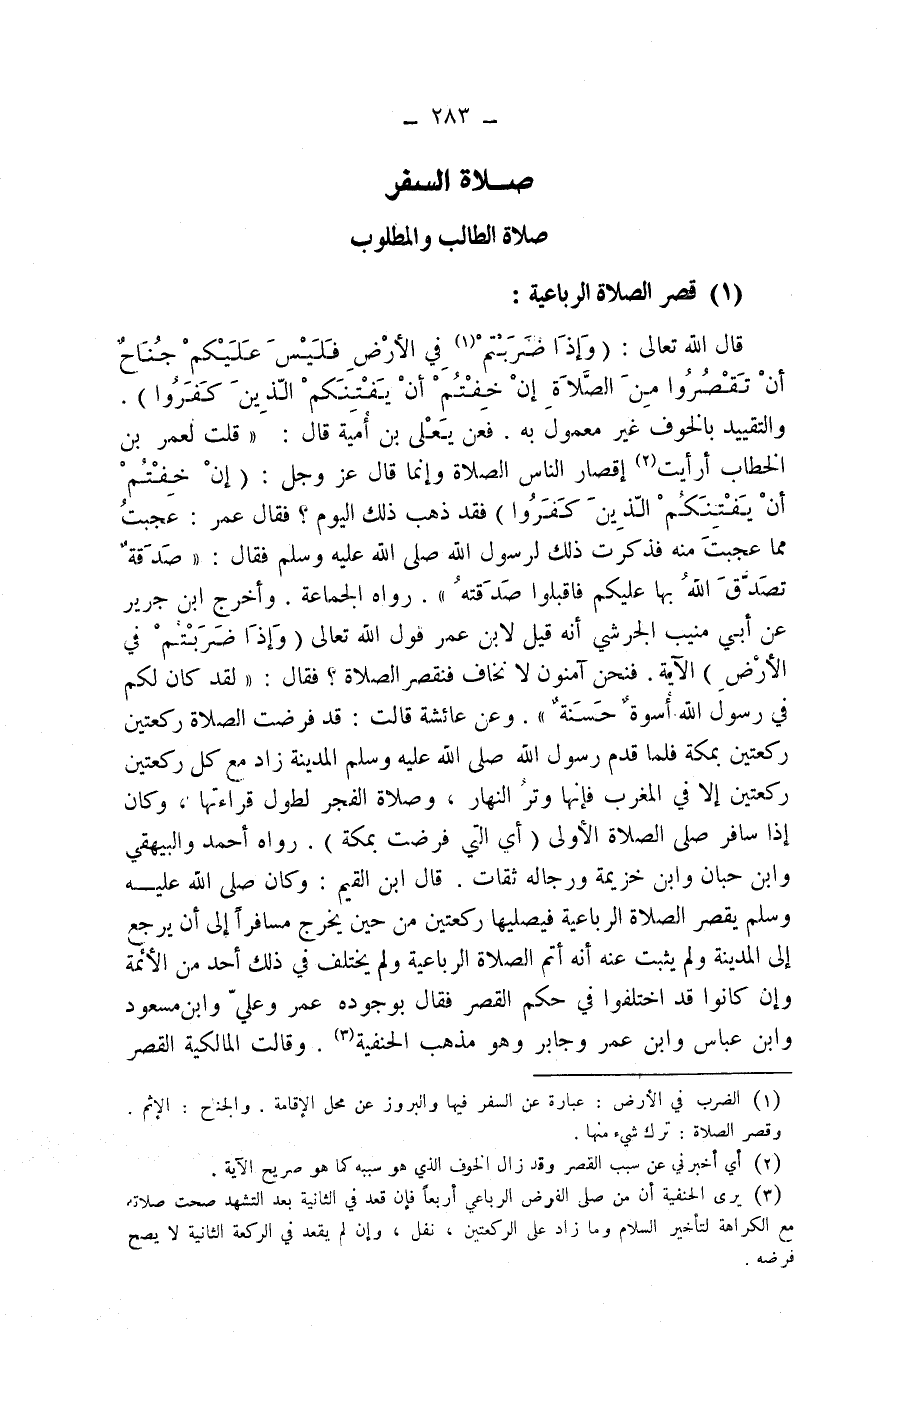 — ٢٨٣ —
صلاة السفر
صلاة الطالب والمطلوب
(١) قصر الصلاة الرباعية :
قال الله تعالى : ( وَإِذَا ضَرَبْتُمْ(١) فِي الأَرْضِ فَلَيْسَ عَلَيْكُمْ جُنَاحٌ
أَنْ تَقْصُرُوا مِنَ الصَّلاَةِ إِنْ خِفْتُمْ أَنْ يَفْتِنَكُمُ الَّذِينَ كَفَرُوا ) .
والتقييد بالخوف غير معمول به . فعن يَعْلى بن أُمية قال : « قلت لعمر بن
الخطاب أرأيت(٢) إقصار الناس الصلاة وإنما قال عز وجل : ( إِنْ خِفْتُمْ
أَنْ يَفْتِنَكُمُ الَّذِينَ كَفَرُوا ) فقد ذهب ذلك اليوم ؟ فقال عمر : عجبتُ
مما عجبتَ منه فذكرت ذلك لرسول الله صلى الله عليه وسلم فقال : « صَدَقةٌ
تصَدَّقَ اللهُ بها عليكم فاقبلوا صَدَقتهُ » . رواه الجماعة . وأخرج ابن جرير
عن أبي منيب الجرشي أنه قيل لابن عمر قول الله تعالى ( وَإِذَا ضَرَبْتُمْ في
الأَرْضِ ) الآية . فنحن آمنون لا نخاف فنقصر الصلاة ؟ فقال : « لقد كان لكم
في رسول الله أُسوةٌ حَسَنَةٌ » . وعن عائشة قالت : قد فرضت الصلاة ركعتين
ركعتين بمكة فلما قدم رسول الله صلى الله عليه وسلم المدينة زاد مع كل ركعتين
ركعتين إلا في المغرب فإنها وترُ النهار ، وصلاة الفجر لطول قراءتها ، وكان
إذا سافر صلى الصلاة الأولى ( أي التي فرضت بمكة ) . رواه أحمد والبيهقي
وابن حبان وابن خزيمة ورجاله ثقات . قال ابن القيم : وكان صلى الله عليه
وسلم يقصر الصلاة الرباعية فيصليها ركعتين من حين يخرج مسافراً إلى أن يرجع
إلى المدينة ولم يثبت عنه أنه أتم الصلاة الرباعية ولم يختلف في ذلك أحد من الأئمة
وإن كانوا قد اختلفوا في حكم القصر فقال بوجوده عمر وعليّ وابن مسعود
وابن عباس وابن عمر وجابر وهو مذهب الحنفية(٣) . وقالت المالكية القصر
(١) الضرب في الأرض : عبارة عن السفر فيها والبروز عن محل الإقامة . والجناح : الإثم .
وقصر الصلاة : ترك شيء منها .
(٢) أي أخبرني عن سبب القصر وقد زال الخوف الذي هو سببه كما هو صريح الآية .
(٣) يرى الحنفية أن من صلى الفرض الرباعي أربعاً فإن قعد في الثانية بعد التشهد صحت صلاته
مع الكراهة لتأخير السلام وما زاد على الركعتين ، نفل ، وإن لم يقعد في الركعة الثانية لا يصح
فرضه .